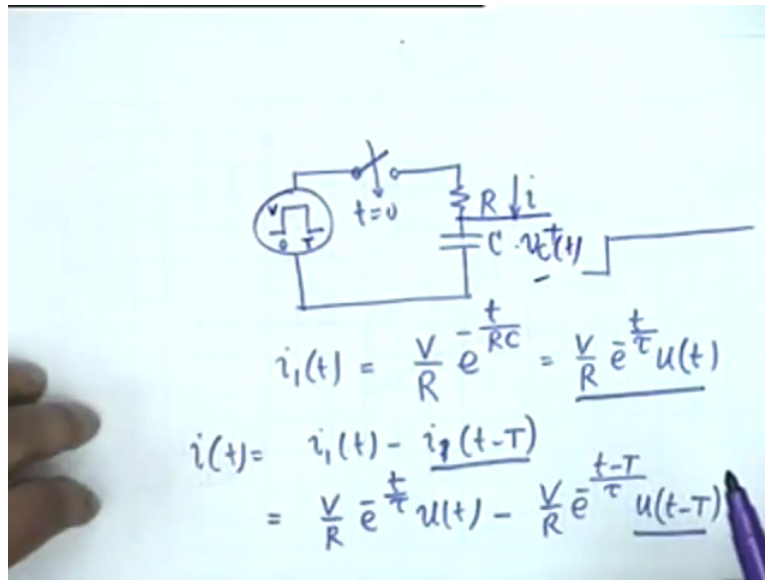 V
0 T
t=0
R ↓ i
C + v_c(t) -
i₁(t) = V/R e^(-t/RC) = V/R e^(-t/τ) u(t)
i(t) = i₁(t) - i₁(t-T)
= V/R e^(-t/τ) u(t) - V/R e^(-(t-T)/τ) u(t-T)